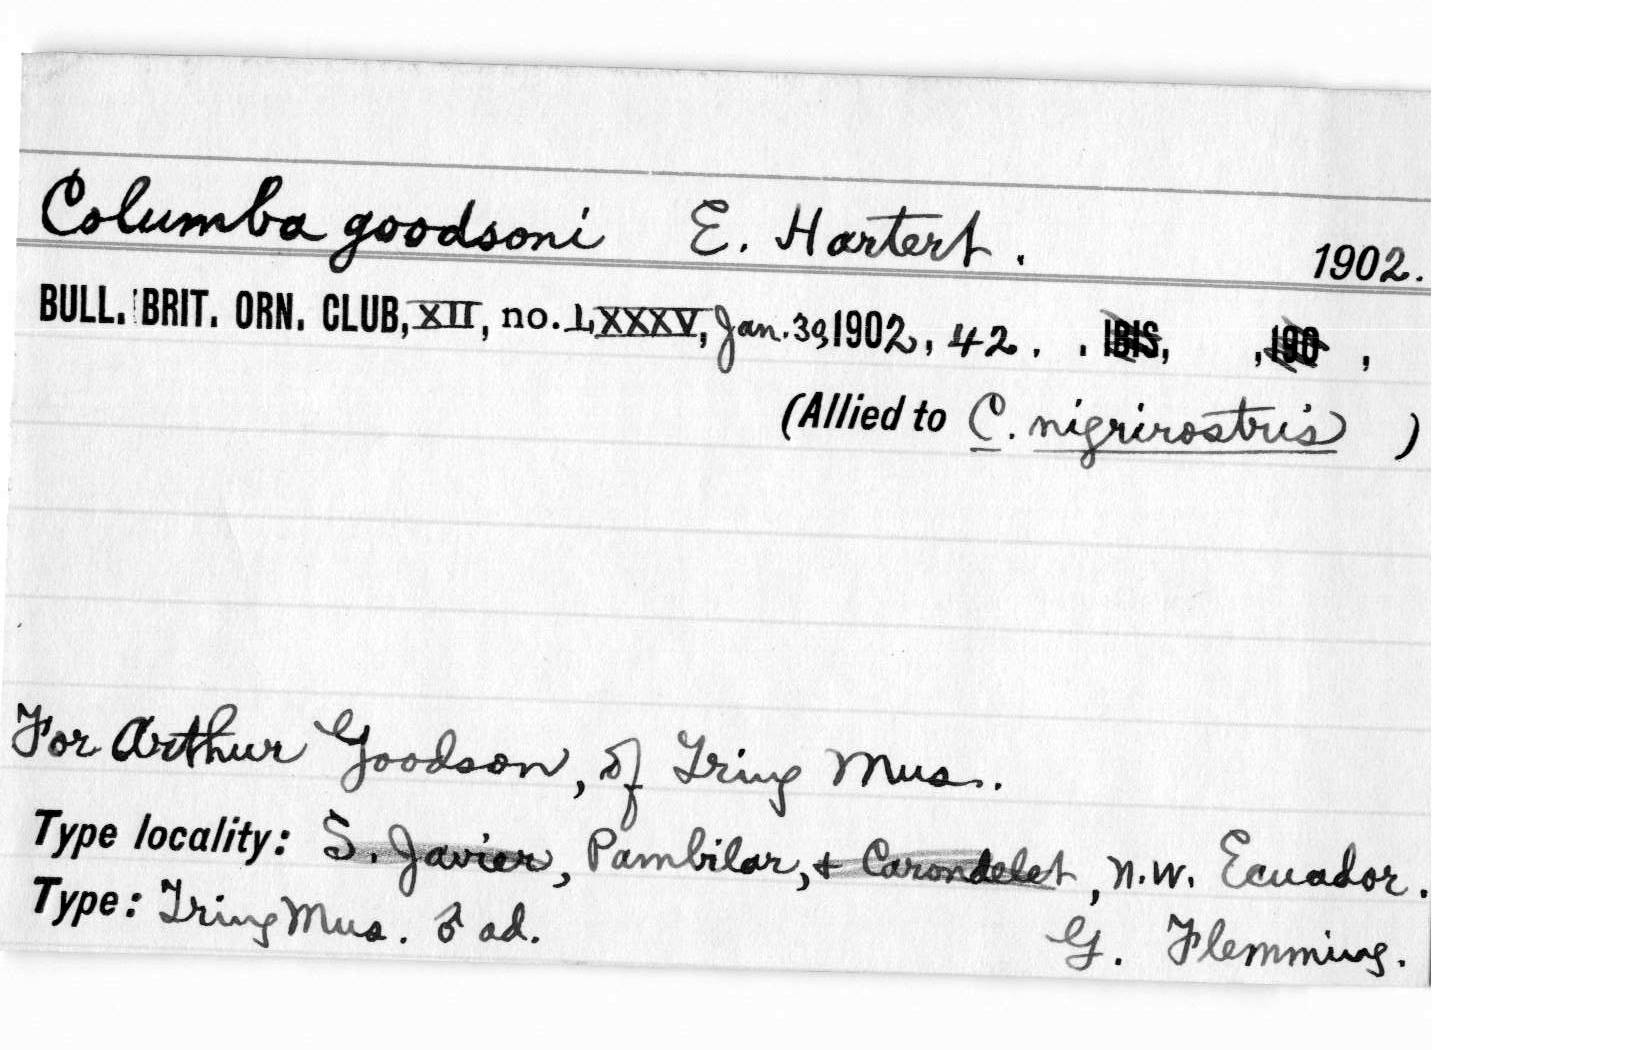 Columba goodsoni E. Hartert. 1902.
BULL. BRIT. ORN. CLUB, XII, no. LXXXV, Jan. 30, 1902, 42. . IBIS, , 190 ,
(Allied to C. nigrirostris )
For Arthur Goodson, of Tring Mus..
Type locality: S. Javier, Pambilar, + Carondelet, N.W. Ecuador.
Type: Tring Mus. ♂ ad. G. Flemming.